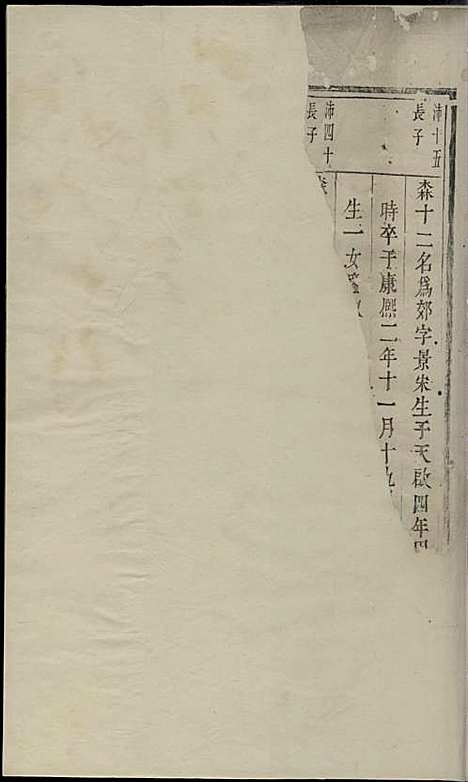 沛十五
長子
森十二名爲郊字景宋生于天啟四年
時卒于康熙二年十一月十九
沛四十
長子
生一女